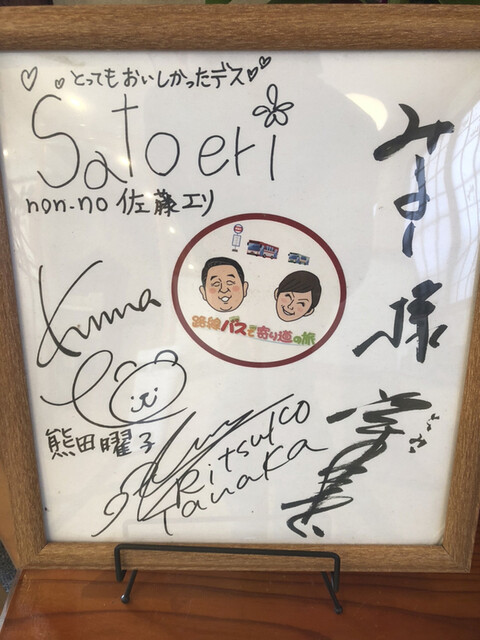 とってもおいしかったデス
Satoeri
non-no 佐藤エリ
みよー様
路線バスで寄り道の旅
Kuma
熊田曜子
Ritsuko
Tanaka